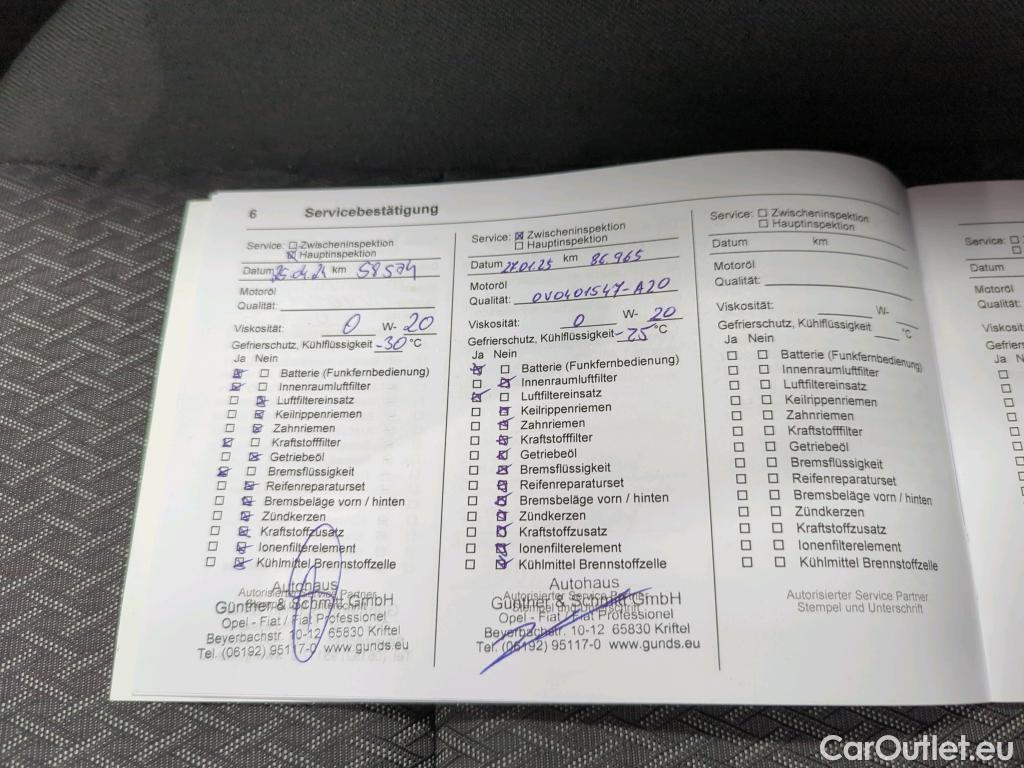 6 Servicebestätigung
Service: Zwischeninspektion
Hauptinspektion
Datum 25.04.24 km 58574
Motoröl
Qualität:
Viskosität: 0 W- 20
Gefrierschutz, Kühlflüssigkeit -30 °C
Ja Nein
Batterie (Funkfernbedienung)
Innenraumluftfilter
Luftfiltereinsatz
Keilrippenriemen
Zahnriemen
Kraftstofffilter
Getriebeöl
Bremsflüssigkeit
Reifenreparaturset
Bremsbeläge vorn / hinten
Zündkerzen
Kraftstoffzusatz
Ionenfilterelement
Kühlmittel Brennstoffzelle
Autorisierter Service Partner
Stempel und Unterschrift
Autohaus
Günther & Schmitt GmbH
Opel - Fiat / Fiat Professional
Beyerbachstr. 10-12 65830 Kriftel
Tel. (06192) 95117-0 www.gunds.eu
Service: Zwischeninspektion
Hauptinspektion
Datum 27.01.25 km 86965
Motoröl
Qualität: OV0401547-A20
Viskosität: 0 W- 20
Gefrierschutz, Kühlflüssigkeit -25 °C
Ja Nein
Batterie (Funkfernbedienung)
Innenraumluftfilter
Luftfiltereinsatz
Keilrippenriemen
Zahnriemen
Kraftstofffilter
Getriebeöl
Bremsflüssigkeit
Reifenreparaturset
Bremsbeläge vorn / hinten
Zündkerzen
Kraftstoffzusatz
Ionenfilterelement
Kühlmittel Brennstoffzelle
Autorisierter Service Partner
Stempel und Unterschrift
Autohaus
Günther & Schmitt GmbH
Opel - Fiat / Fiat Professional
Beyerbachstr. 10-12 65830 Kriftel
Tel. (06192) 95117-0 www.gunds.eu
Service: Zwischeninspektion
Hauptinspektion
Datum km
Motoröl
Qualität:
Viskosität: W-
Gefrierschutz, Kühlflüssigkeit °C
Ja Nein
Batterie (Funkfernbedienung)
Innenraumluftfilter
Luftfiltereinsatz
Keilrippenriemen
Zahnriemen
Kraftstofffilter
Getriebeöl
Bremsflüssigkeit
Reifenreparaturset
Bremsbeläge vorn / hinten
Zündkerzen
Kraftstoffzusatz
Ionenfilterelement
Kühlmittel Brennstoffzelle
Autorisierter Service Partner
Stempel und Unterschrift
Service:
Datum
Motoröl
Qualität:
Ja
CarOutlet.eu